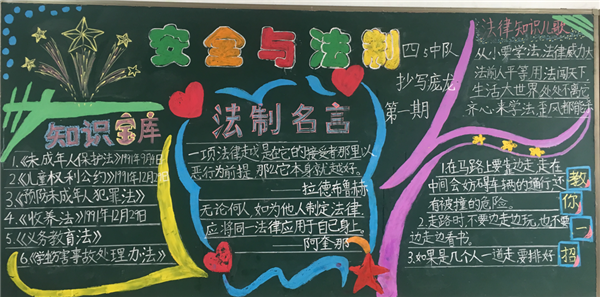 安全与法制
四5中队
抄写庞龙
第一期
知识宝库
1.《未成年人保护法》1991年9月4日
2.《儿童权利公约》1991年12月29日
3.《预防未成年人犯罪法》
4.《收养法》1991年12月29日
5.《义务教育法》
6《学生伤害事故处理办法》
法制名言
一项法律越是在它的接受者那里以
恶行为前提,那么它本身就越好。
——拉德布鲁赫
无论何人,如为他人制定法律,
应将同一法律应用于自己身上。
——阿奎那
法律知识儿歌
从小要学法,法律威力大
法前人平等,用法闯天下,
生活大世界,处处不离它
齐心来学法,歪风都能
教你一招
1.在马路上要靠边走,走在
中间会妨碍车辆的通行还
有被撞的危险。
2.走路时,不要边走边玩,也不要
边走边看书。
3.如果是几个人一道走,要排好